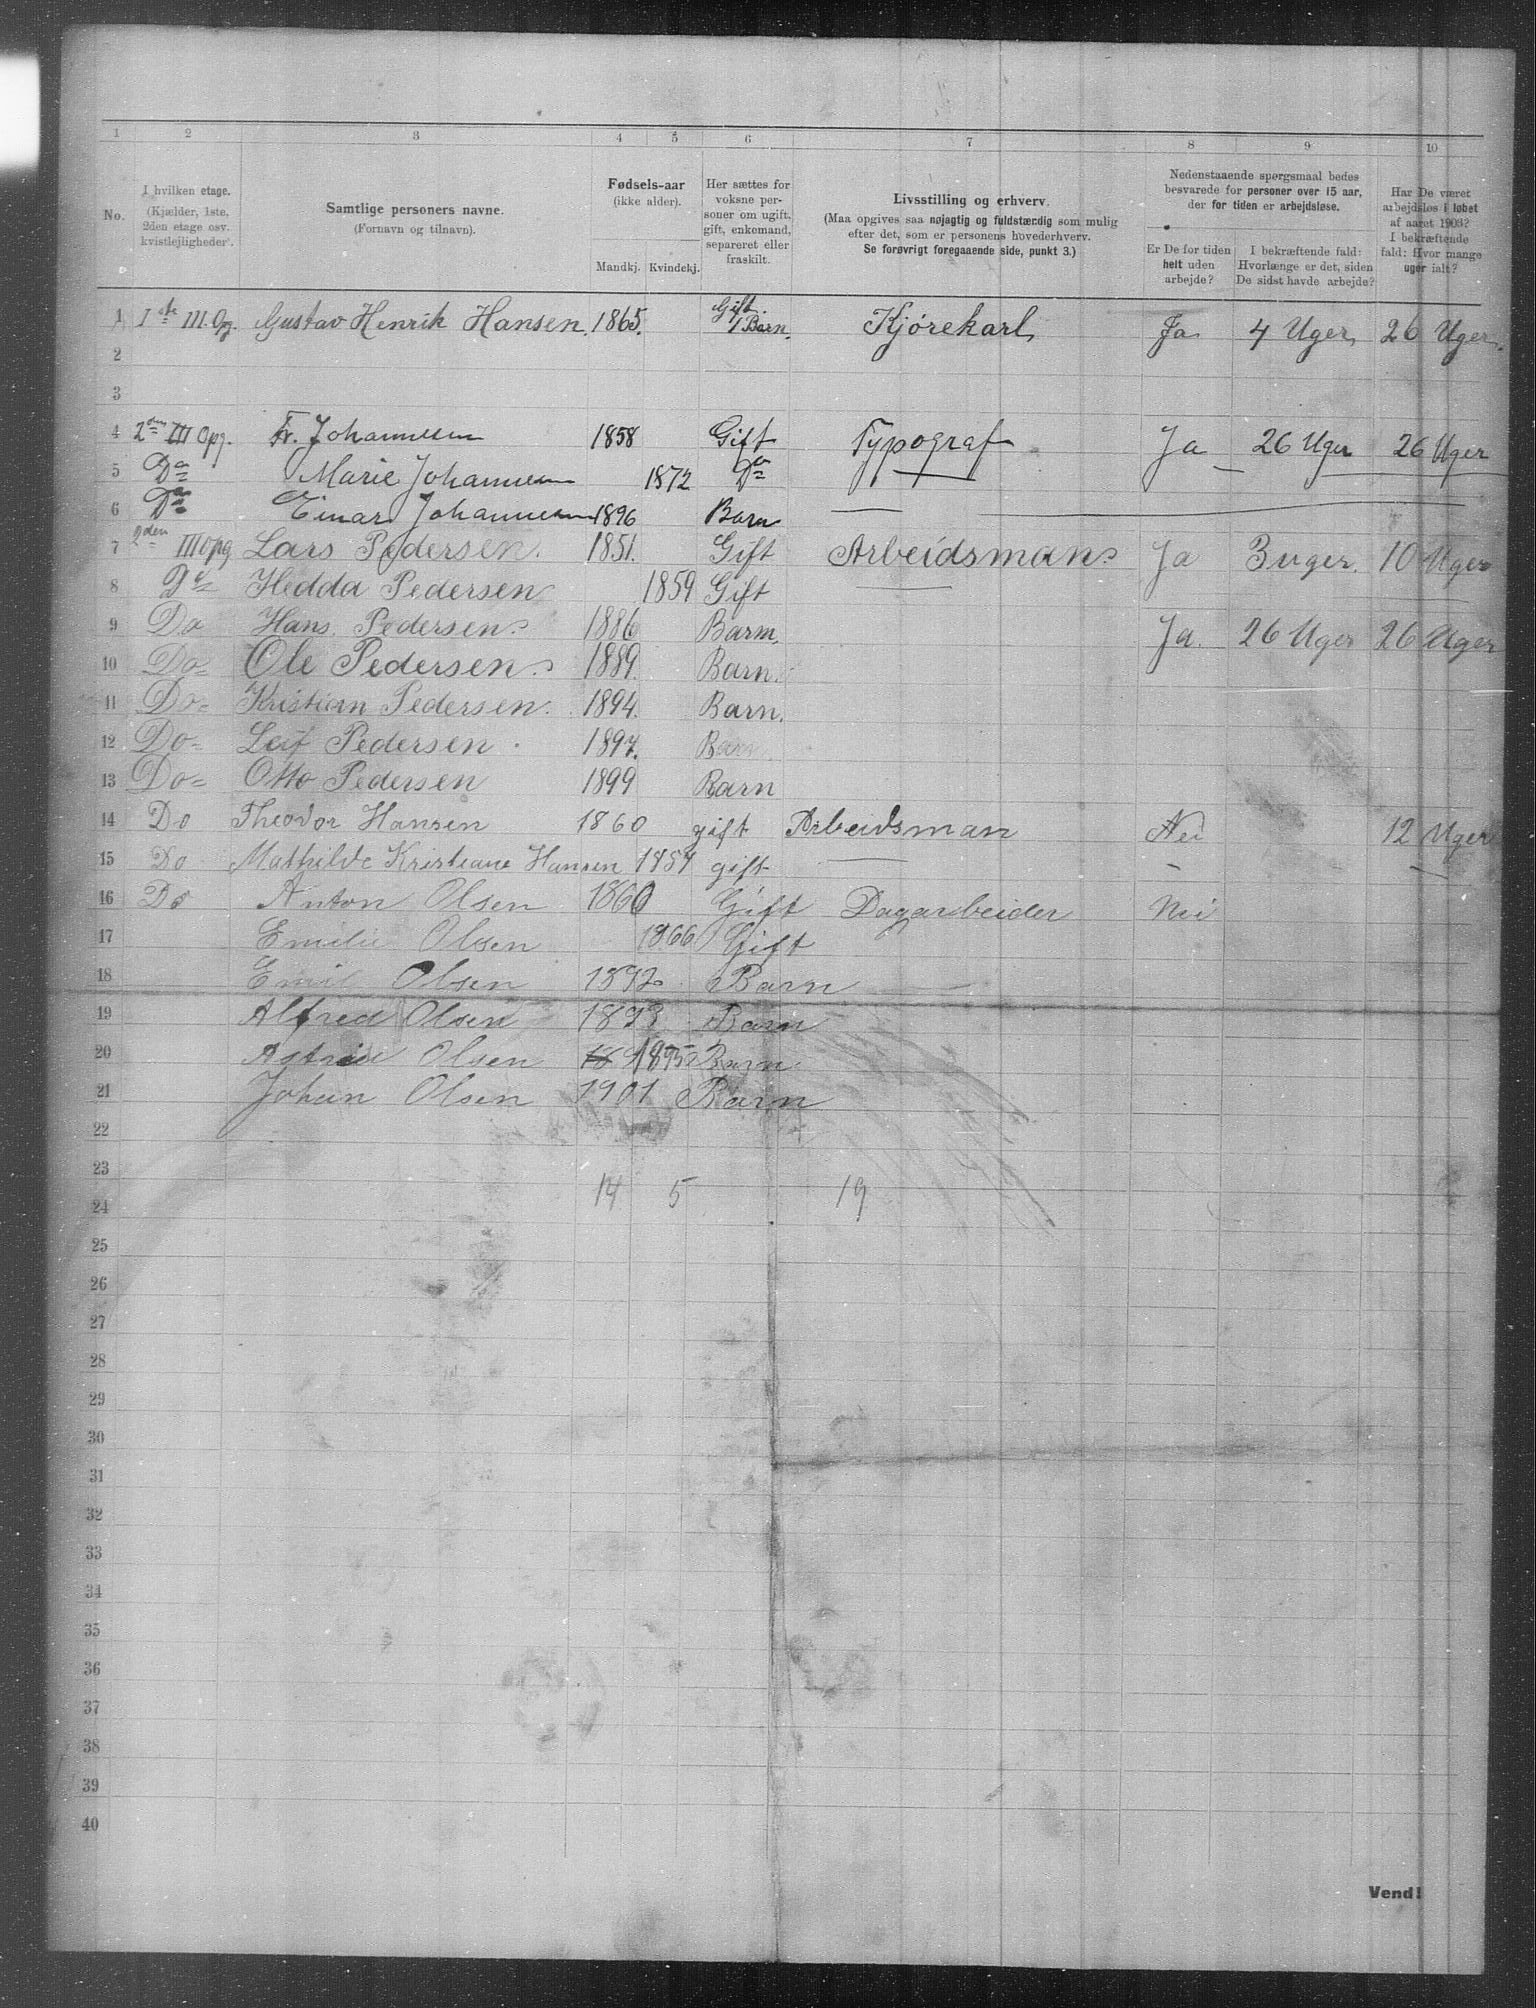 1 2 3 4 5 6 7 8 9 10
No.
I hvilken etage.
(Kjælder, 1ste,
2den etage osv.
kvistlejligheder).
Samtlige personers navne.
(Fornavn og tilnavn).
Fødsels-aar
(ikke alder).
Mandkj. Kvindekj.
Her sættes for
voksne per-
soner om ugift,
gift, enkemand,
separeret eller
fraskilt.
Livsstilling og erhverv.
(Maa opgives saa nøjagtig og fuldstændig som mulig
efter det, som er personens hovederhverv.
Se forøvrigt foregaaende side, punkt 3.)
Nedenstaaende spørgsmaal bedes
besvarede for personer over 15 aar,
der for tiden er arbejdsløse.
Er De for tiden
helt uden
arbejde?
I bekræftende fald:
Hvorlænge er det, siden
De sidst havde arbejde?
Har De været
arbejdsløs i løbet
af aaret 1903?
I bekræftende
fald: Hvor mange
uger ialt?
1 1ste III. Opg. Gustav Henrik Hansen. 1865. Gift. 1 Barn. Kjørekarl Ja 4 Uger 26 Uger.
2
3
4 2den III Opg. Fr. Johannesen 1858 Gift Typograf Ja 26 Uger 26 Uger
5 Do Marie Johannesen 1872 Do — —
6 Do Einar Johannesen 1896 Barn — —
7 2den III Opg Lars Pedersen. 1851. Gift Arbeidsman. Ja 3 uger. 10 Uger
8 Do Hedda Pedersen 1859 Gift —
9 Do Hans Pedersen. 1886 Barn. Ja. 26 Uger 26 Uger
10 Do Ole Pedersen. 1889. Barn.
11 Do Kristian Pedersen. 1894. Barn.
12 Do Leif Pedersen. 1897. Barn
13 Do Otto Pedersen 1899 Barn
14 Do Theodor Hansen 1860 gift Arbeidsman Nei 12 Uger
15 Do Mathilde Kristiane Hansen 1857 gift — - -
16 Do Anton Olsen 1860 Gift Dagarbeider Nei
17 Emilie Olsen 1866 Gift
18 Emil Olsen 1892 Barn
19 Alfred Olsen 1893 Barn
20 Astrid Olsen 1895 Barn
21 Johan Olsen 1901 Barn
22
23
14 5 19
24
25
26
27
28
29
30
31
32
33
34
35
36
37
38
39
40
Vend!